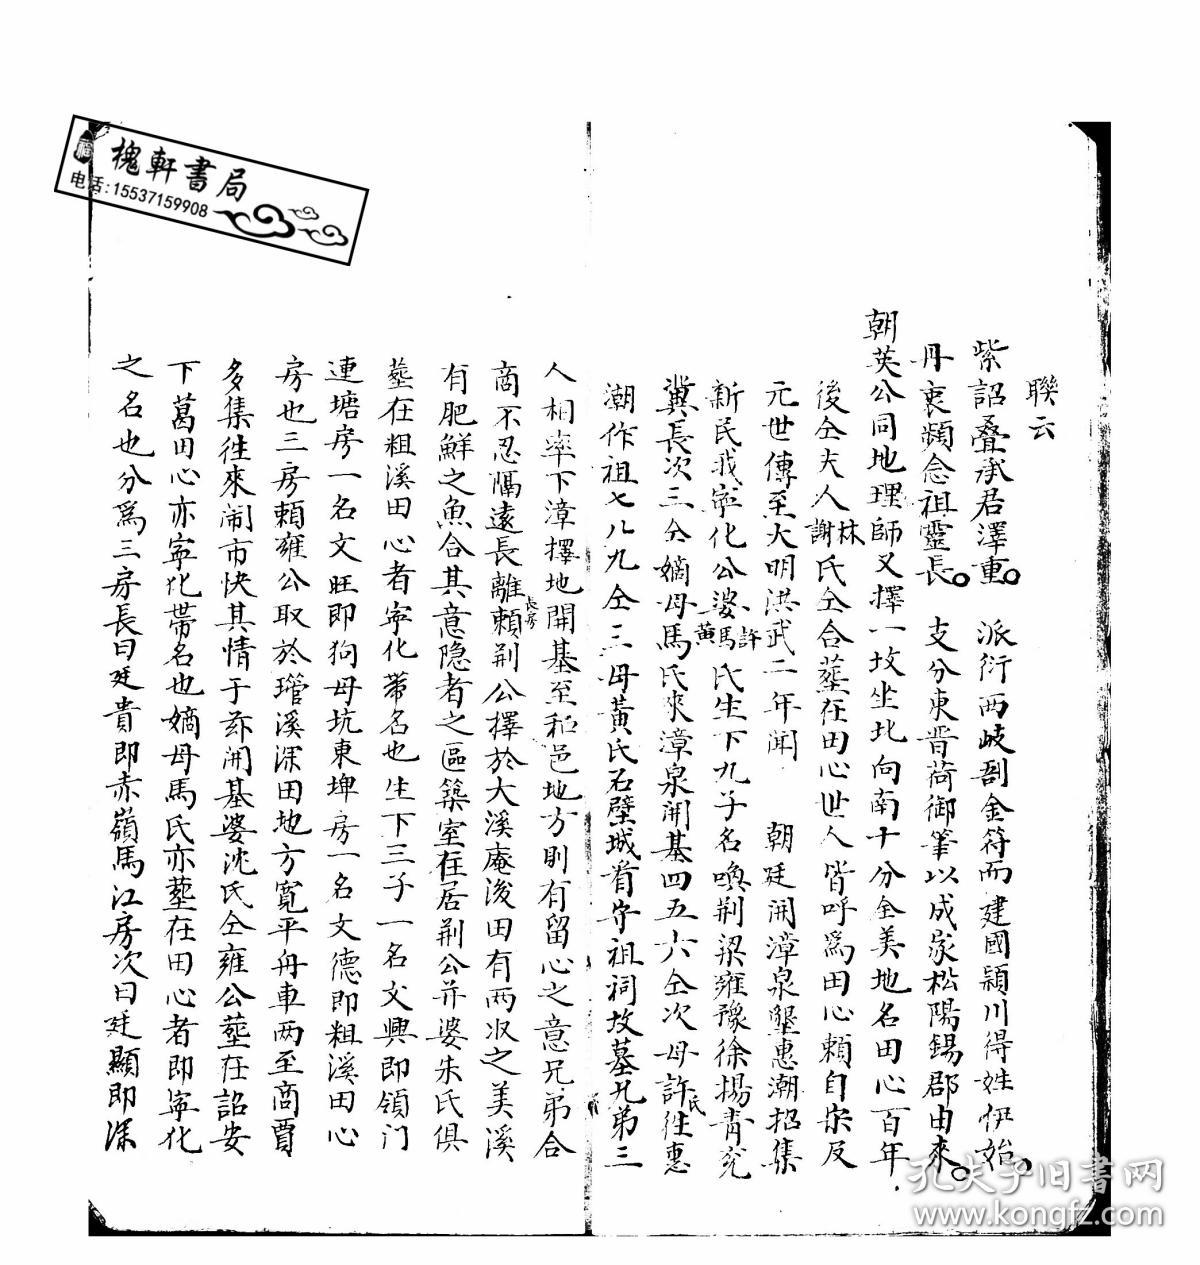 聯云
紫詔叠承君澤重。派衍西岐剖金符而建國穎川得姓伊始。
丹衷頻念祖靈長。支分東晋荷御筆以成家松陽錫郡由來。
朝英公同地理師又擇一坟坐北向南十分全美地名田心百年
後仝夫人林謝氏仝合塟在田心世人皆呼爲田心賴自宋及
元世傳至大明洪武二年聞 朝廷開漳泉墾惠潮招集
新民我寧化公婆許馬黄氏生下九子名喚荆梁雍豫徐揚青兖
冀長次三仝嫡母馬氏來漳泉開基四五六仝次母許氏往惠
潮作祖七八九仝三母黄氏石壁城看守祖祠坟墓兄弟三
人相率下漳擇地開基至和邑地方則有留心之意兄弟合
商不忍隔遠長離賴長房荆公擇於大溪庵後田有两収之美溪
有肥鮮之魚合其意隐者之區築室在居荆公并婆朱氏俱
塟在粗溪田心者寧化帶名也生下三子一名文興即領门
連塘房一名文旺即狗母坑東埤房一名文德即粗溪田心
房也三房賴雍公取於琯溪深田地方寬平舟車两至商賈
多集徃來闹市快其情于茲開基婆沈氏仝雍公塟在詔安
下葛田心亦寧化帶名也嫡母馬氏亦塟在田心者即寧化
之名也分爲三房長曰廷貴即赤嶺馬江房次曰廷顯即深
槐軒書局
电话:15537159908
孔夫子旧書网
www.kongfz.com